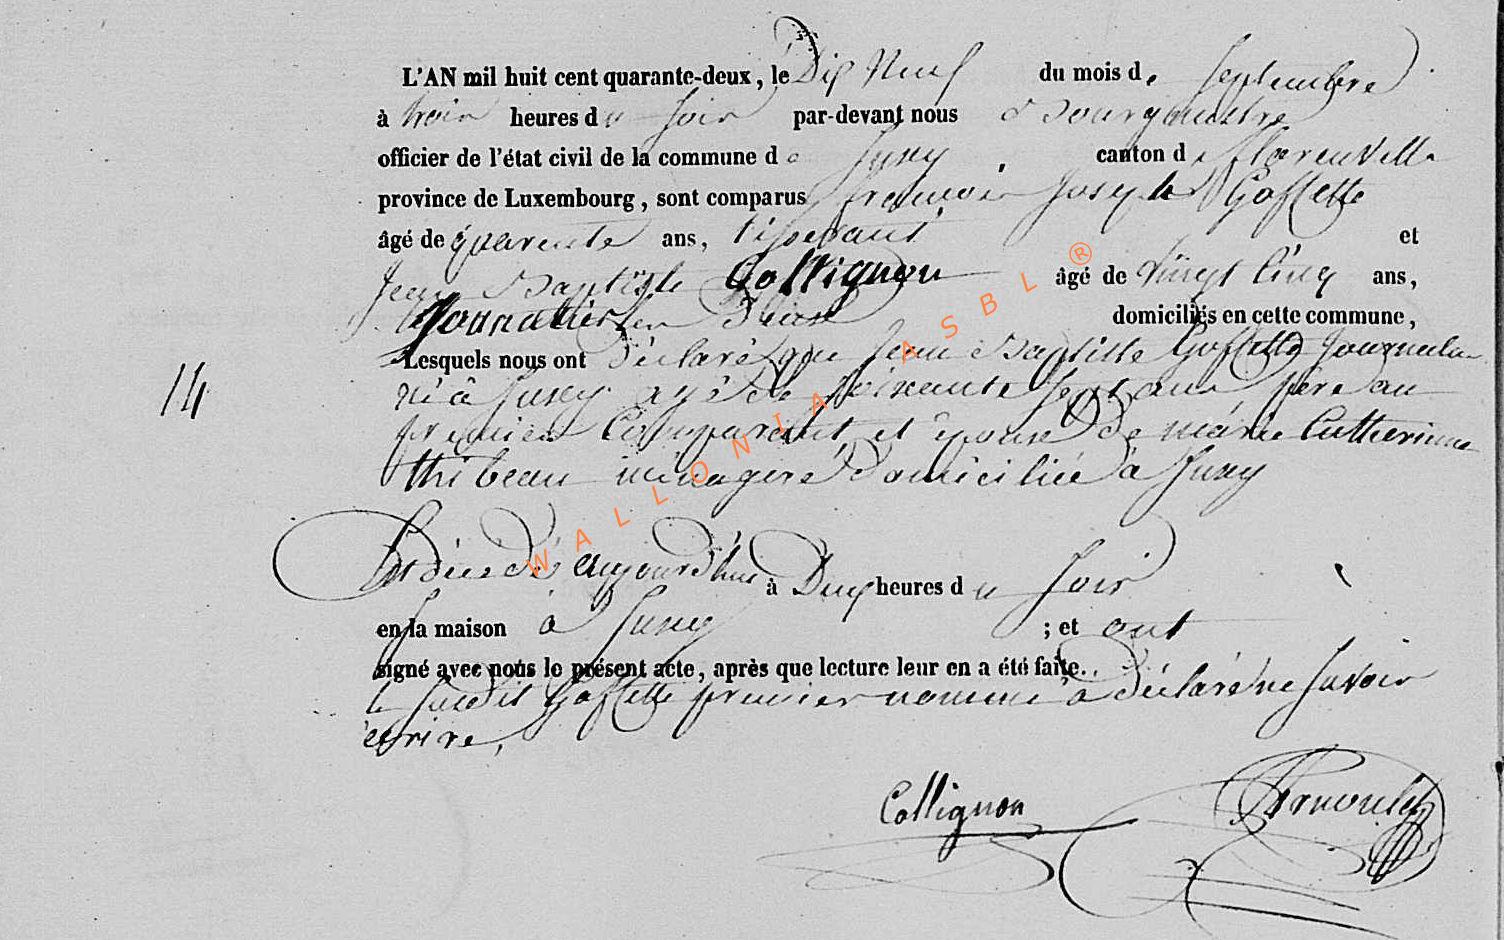 L'AN mil huit cent quarante-deux, le Dix Neuf du mois de Septembre
à trois heures du Soir par-devant nous Bourgmestre
officier de l'état civil de la commune de Jusey, canton de florenville
province de Luxembourg, sont comparus francois Joseph Goffette
âgé de quarente ans, tisserant et
Jean Baptiste Collignon âgé de vingt Cinq ans,
Journallier domiciliés en cette commune,
Lesquels nous ont déclaré que Jean Baptiste Goffette Journalier
né à Jusey agé de soixante sept ans père au
premier Comparant et epoux de marie Catherinne
thibeau ménagère Domiciliée à Jusey
14
Est décedé aujourd'hui à Deux heures du Soir
en la maison à Jusey ; et ont
signé avec nous le présent acte, après que lecture leur en a été faite..
le susdit Goffette premier nommé à déclaré ne savoir
ecrire,
Collignon
WALLONIA ASBL ®